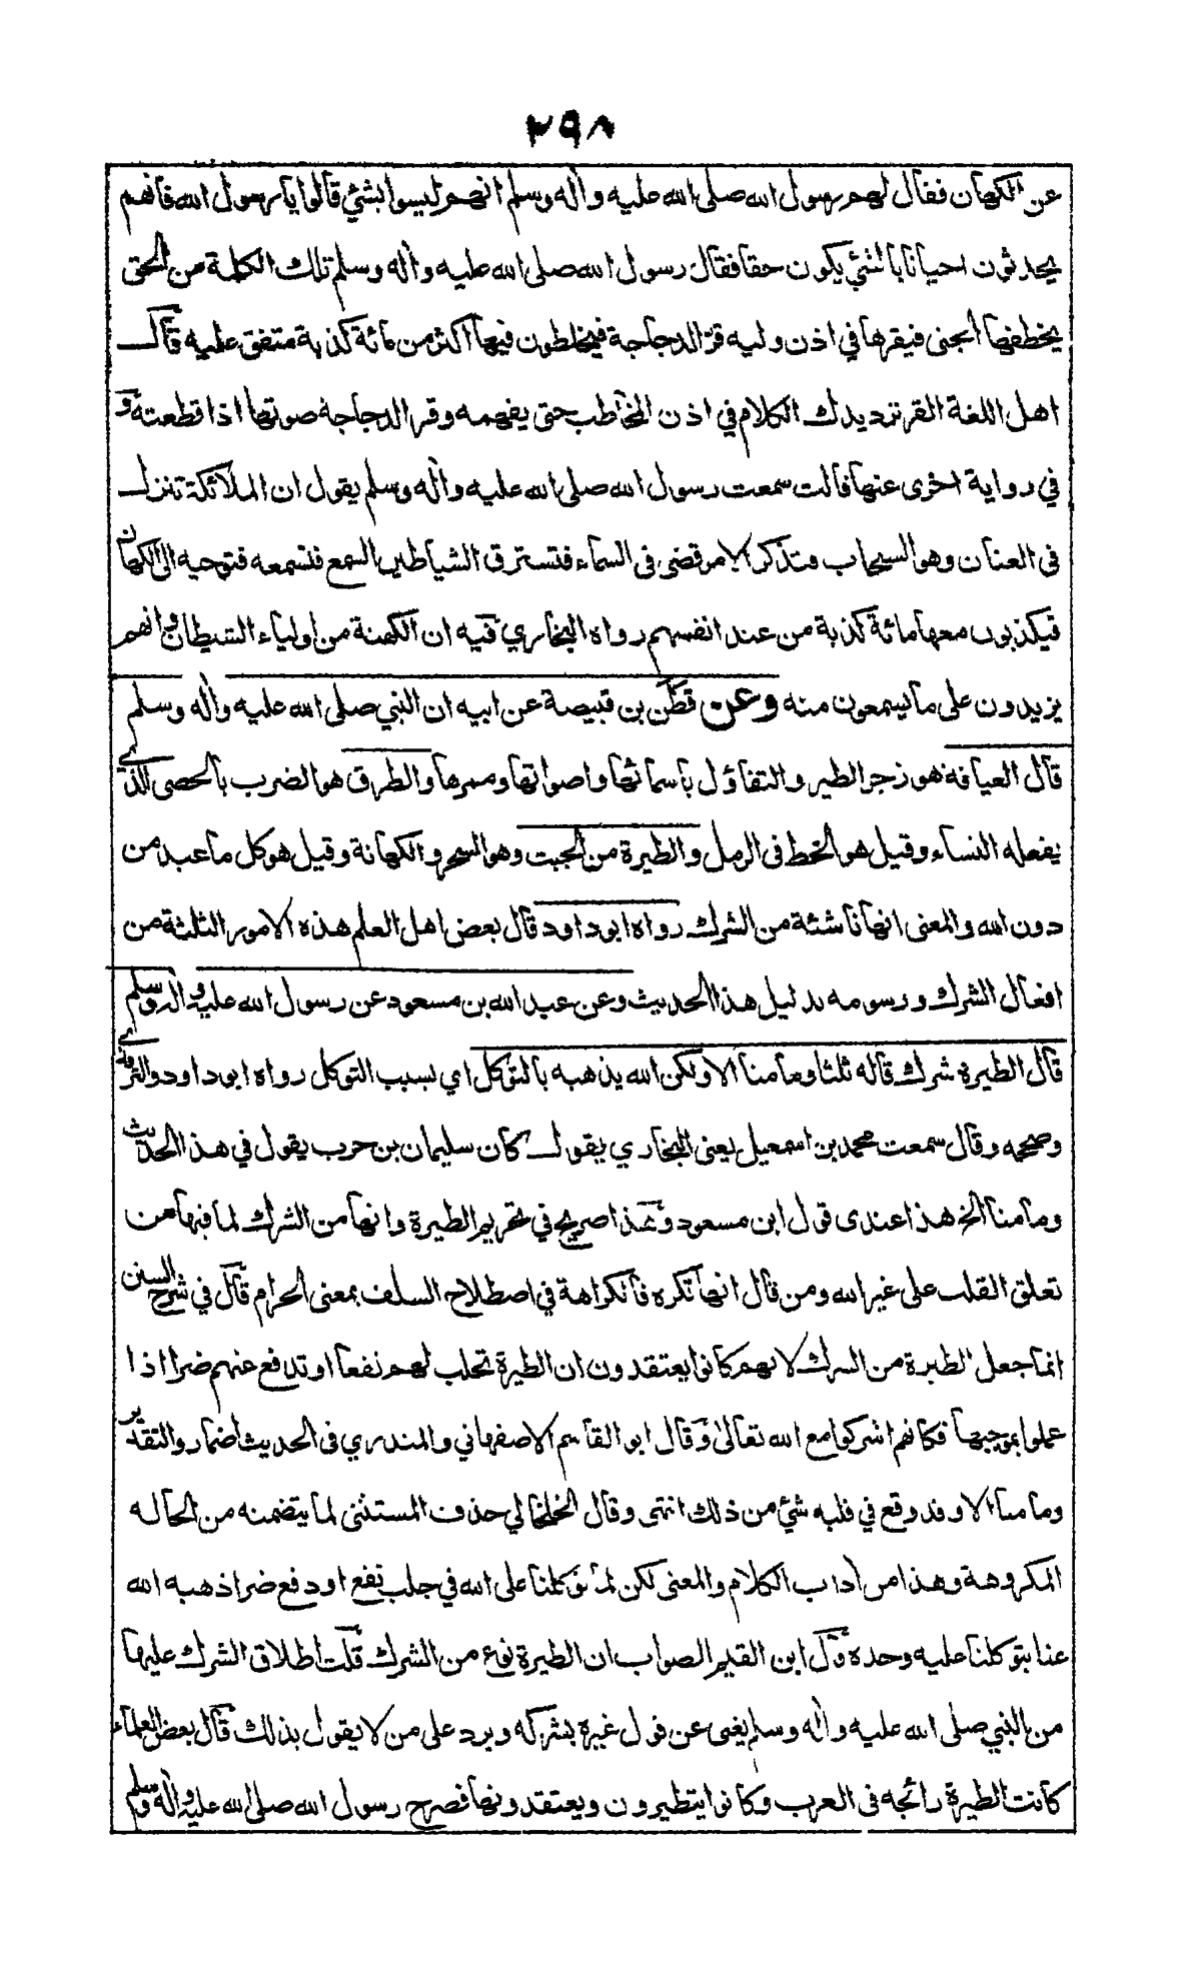 ٢٩٨
عن الكهان فقال لهم رسول الله صلى الله عليه وأله وسلم انهم ليسوا بشئ قالوا يا رسول الله فانهم
يحدثون احيانا بالشئ يكون حقا فقال رسول الله صلى الله عليه وأله وسلم تلك الكلمة من الحق
يخطفها الجنى فيقرها في اذن وليه قرّ الدجاجة فيخلطون فيها اكثر من مائة كذبة متفق عليه قال
اهل اللغة القر ترديدك الكلام في اذن المخاطب حتى يفهمه وقر الدجاجة صوتها اذا قطعته و
في رواية اخرى عنها قالت سمعت رسول الله صلى الله عليه وأله وسلم يقول ان الملائكة تنزل
فى العنان وهو السحاب فتذكر الامر قضى فى السماء فتسترق الشياطين السمع فتسمعه فتوحيه الى الكهان
فيكذبون معها مائة كذبة من عند انفسهم رواه البخاري فيه ان الكهنة من اولياء الشيطان وانهم
يزيدون على ما يسمعون منه وعن قطن بن قبيصة عن ابيه ان النبي صلى الله عليه وأله وسلم
قال العيافة هو زجر الطير والتفاؤل باسمائها واصواتها وممرها والطرق هو الضرب بالحصى الذي
يفعله النساء وقيل هو الخط فى الرمل والطيرة من الجبت وهو السحر والكهانة وقيل هو كل ما عبد من
دون الله والمعنى انها ناشئة من الشرك رواه ابو داود قال بعض اهل العلم هذه الامور الثلثة من
افعال الشرك ورسومه بدليل هذا الحديث وعن عبد الله بن مسعود عن رسول الله صلى عليه وأله وسلم
قال الطيرة شرك قاله ثلثا وما منا الا ولكن الله يذهبه بالتوكل اي بسبب التوكل رواه ابو داود والترمذي
وصححه وقال سمعت محمد بن اسمعيل يعنى البخاري يقول كان سليمان بن حرب يقول في هذا الحديث
وما منا الخ هذا عندى قول ابن مسعود وهذا صريح في تحريم الطيرة وانها من الشرك لما فيها من
تعلق القلب على غير الله ومن قال انها تكره فالكراهة في اصطلاح السلف بمعنى الحرام قال في شرح السنن
انما جعل الطيرة من الشرك لانهم كانوا يعتقدون ان الطيرة تجلب لهم نفعا او تدفع عنهم ضرا اذا
عملوا بموجبها فكانهم اشركوا مع الله تعالى وقال ابو القاسم الاصفهاني والمنذري فى الحديث اضمار والتقدير
وما منا الا وقد وقع في قلبه شئ من ذلك انتهى وقال الخلخالي حذف المستثنى لما يتضمنه من الحالة
المكروهة وهذا من أداب الكلام والمعنى لكن لما توكلنا على الله في جلب نفع او دفع ضر اذهبه الله
عنا بتوكلنا عليه وحده قال ابن القيم الصواب ان الطيرة نوع من الشرك قلت اطلاق الشرك عليها
من النبي صلى الله عليه وأله وسلم يغنى عن قول غيره بشركه ويرد على من لا يقول بذلك قال بعض العلماء
كانت الطيرة رائجة فى العرب وكانوا يتطيرون ويعتقدونها فصرح رسول الله صلى الله عليه وأله وسلم